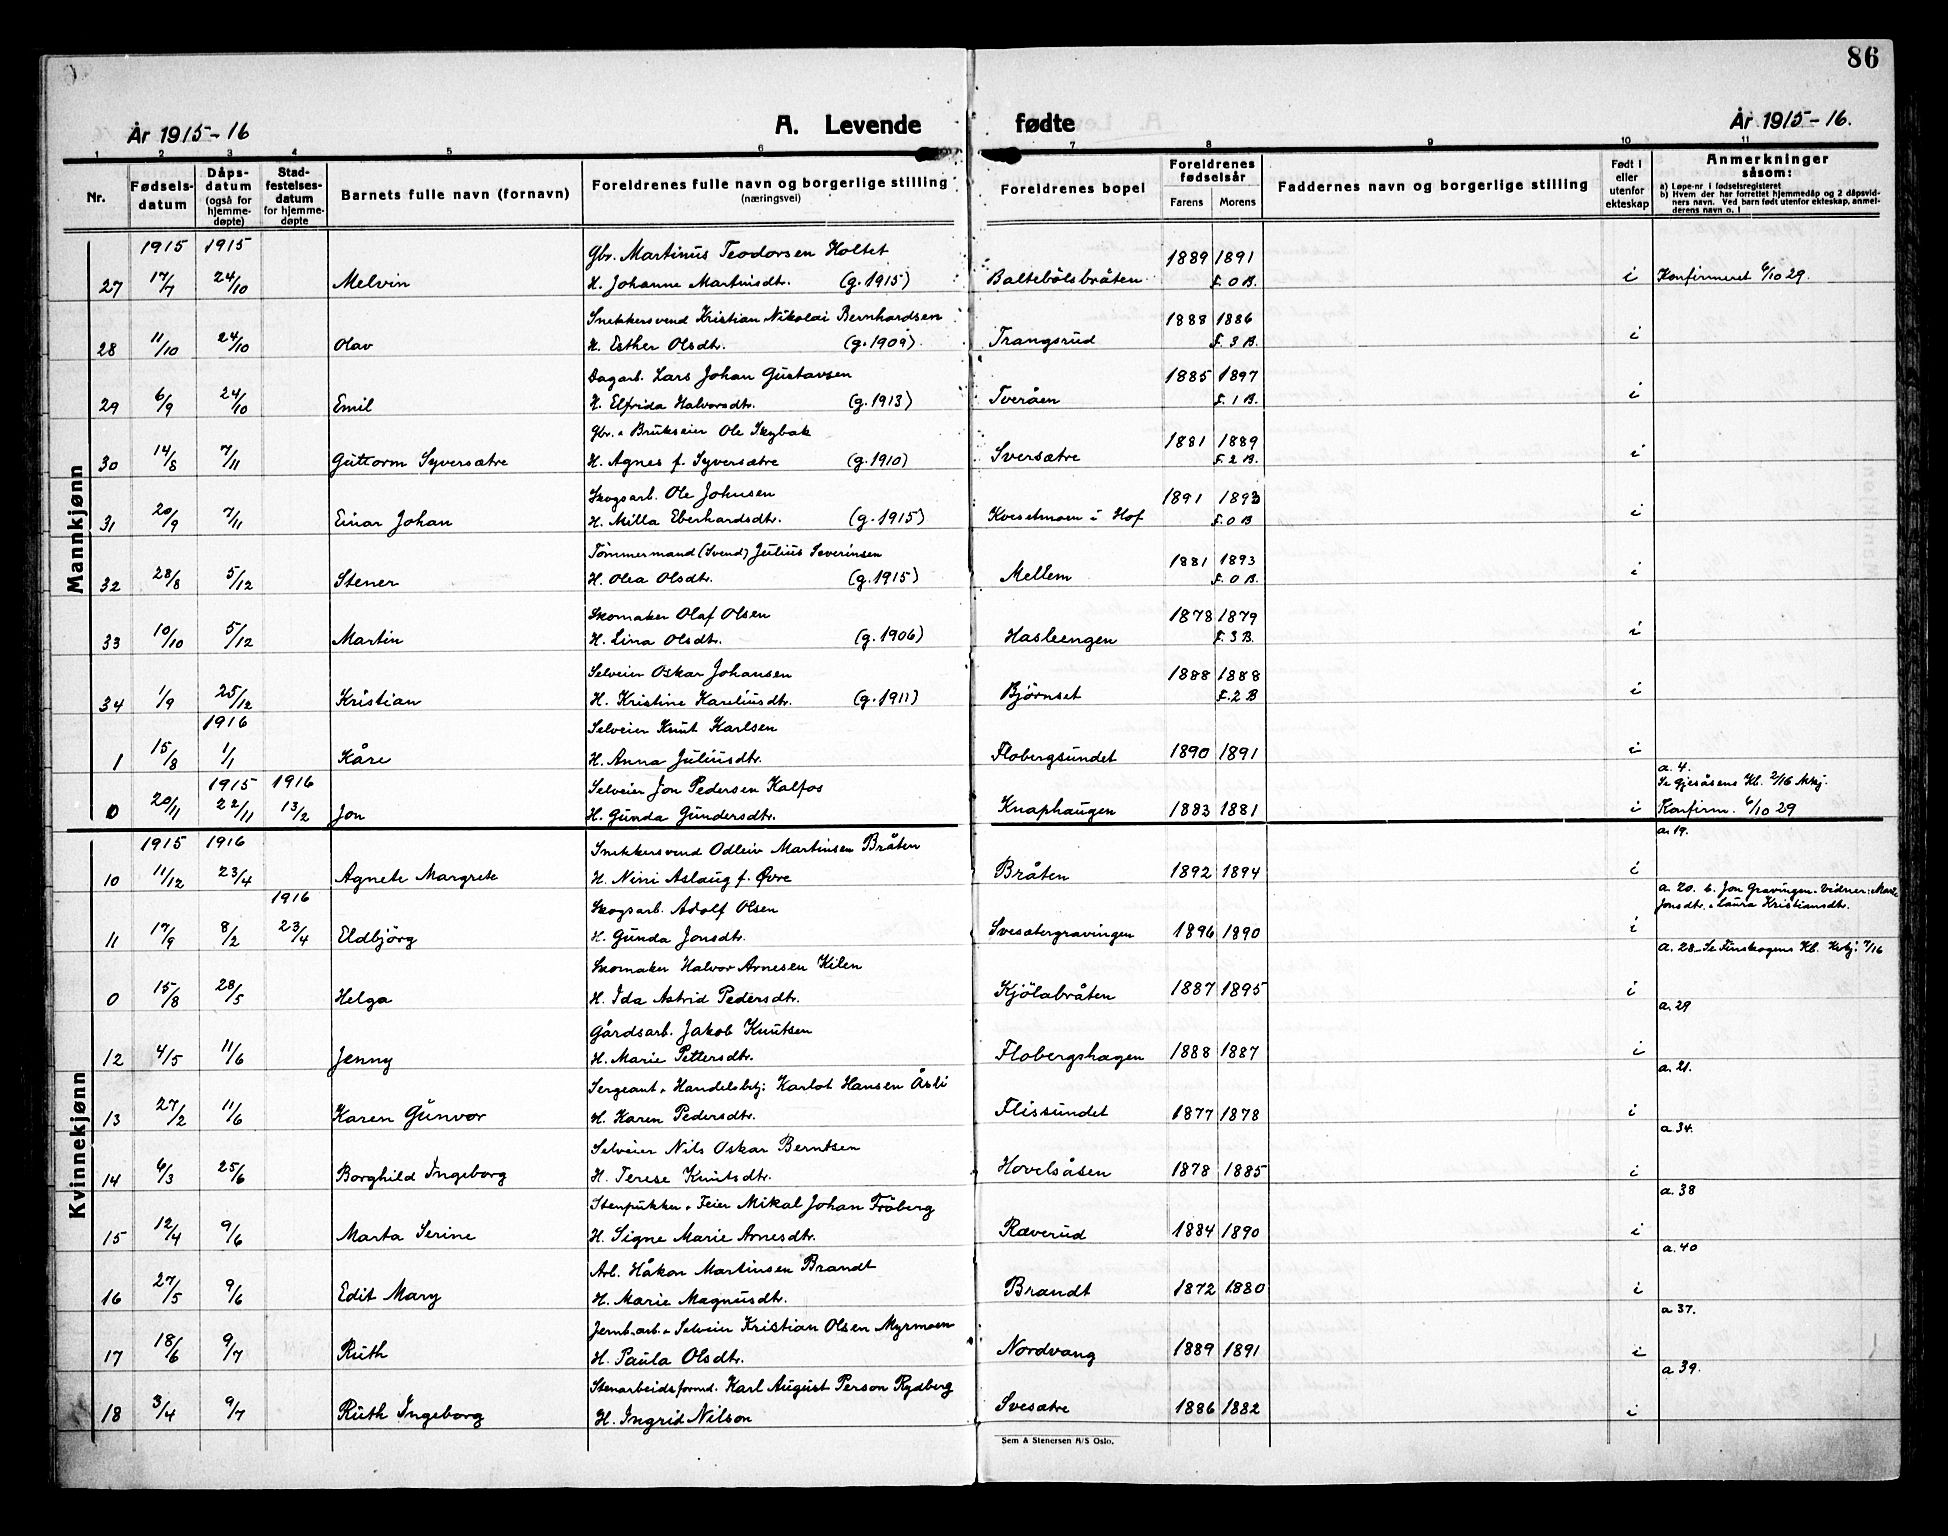 86
År 1915-16
A. Levende fødte
År 1915-16.
1 2 3 4 5 6 7 8 9 10 11
Nr.
Fødselsdatum
Dåpsdatum (også for hjemmedøpte)
Stadfestelsesdatum for hjemmedøpte
Barnets fulle navn (fornavn)
Foreldrenes fulle navn og borgerlige stilling (næringsvei)
Foreldrenes bopel
Foreldrenes fødselsår
Farens Morens
Faddernes navn og borgerlige stilling
Født i eller utenfor ekteskap
Anmerkninger såsom:
a) Løpe-nr. i fødselsregisteret
b) Hvem der har forrettet hjemmedåp og 2 dåpsvidners navn. Ved barn født utenfor ekteskap, anmelderens navn o. l
Mannkjønn
1915 1915 Gbr. Martinus Teodorsen Holtet 1889 1891
27 17/7 24/10 Melvin H. Johanne Martinsdt. (g. 1915) Baltebölsbråten F. 0 B. i Konfirmeret 6/10 29.
Snekkersvend Kristian Nikolai Bernhardsen 1888 1886
28 11/10 24/10 Olav H. Esther Olsdtr. (g. 1909) Trangsrud F. 3 B. i
Dagarb. Lars Johan Gustavsen 1885 1897
29 6/9 24/10 Emil H. Elfrida Halvorsdtr. (g. 1913) Tveråen F. 1 B. i
Gbr. & Brukseier Ole Skybak 1881 1889
30 14/8 7/11 Guttorm Syversætre H. Agnes f. Syversætre (g. 1910) Sversætre F. 2 B. i
Skogsarb. Ole Johnsen 1891 1893
31 20/9 7/11 Einar Johan H. Milla Eberhardsdtr. (g. 1915) Kvesetmoen i Hof F. 0 B i
Tømmermand (Svend) Julius Severinsen 1881 1893
32 28/8 5/12 Stener H. Olea Olsdtr. (g. 1915) Mellem F. 0 B. i
Skomaker Olaf Olsen 1878 1879
33 10/10 5/12 Martin H. Lina Olsdtr. (g. 1906) Hasleengen F. 3 B. i
Selveier Oskar Johansen 1888 1888
34 1/9 25/12 Kristian H. Kristine Kareliusdtr. (g. 1911) Bjørnset F. 2 B i
1916 Selveier Knut Karlsen
1 15/8 1/1 Kåre H. Anna Juliusdtr. Flobergsundet 1890 1891 i
1915 1916 Selveier Jon Pedersen Kalfos a. 4. Se Gjesåsens Kl. 2/16 Mkj.
0 20/11 22/11 13/2 Jon H. Gunda Gundersdtr. Knaphaugen 1883 1881 i Konfirm. 6/10 29
Kvinnekjønn
1915 1916 Snekkersvend Odleiv Martinsen Bråten a. 19.
10 11/12 23/4 Agnete Margrete H. Nini Aslaug f. Øvre Bråten 1892 1894 i
1916 Skogsarb. Adolf Olsen a. 20. b. Jon Gravingen. Vidner: Marte Jonsdtr. & Laura Kristiansdtr.
11 17/9 8/2 23/4 Eldbjörg H. Gunda Jonsdtr. Svesætergravingen 1896 1890 i
Skomaker Halvor Arnesen Kilen a. 28 - Se Finskogens Kl. Kvkj. 7/16
0 15/8 28/5 Helga H. Ida Astrid Pedersdtr. Kjölabråten 1887 1895 i
Gårdsarb. Jakob Knutsen a. 29
12 4/5 11/6 Jenny H. Marie Pettersdtr. Flobergshagen 1888 1887 i
Sergeant & Handelsbtj. Karlot Hansen Åsli a. 21.
13 27/2 11/6 Karen Gunvor H. Karen Pedersdtr. Flissundet 1877 1878 i
Selveier Nils Oskar Berntsen a 34.
14 6/3 25/6 Borghild Ingeborg H. Terese Knutsdtr. Hovelsåsen 1878 1885 i
Stenpukker & Feier Mikal Johan Fröberg a. 38
15 12/4 9/6 Marta Serine H. Signe Marie Arnesdtr. Ræverud 1884 1890 i
Arb. Håkon Martinsen Brandt a. 40
16 27/5 9/6 Edit Mary H. Marie Magnusdtr. Brandt 1872 1880 i
Jernb.arb. & Selveier Kristian Olsen Myrmoen a 37.
17 18/6 9/7 Ruth H. Paula Olsdtr. Nordvang 1889 1891 i
Stenarbeidsformd. Karl August Person Rydberg a 39.
18 3/4 9/7 Ruth Ingeborg H. Ingrid Nilson Svesætre 1886 1882 i
Sem & Stenersen A/S Oslo.